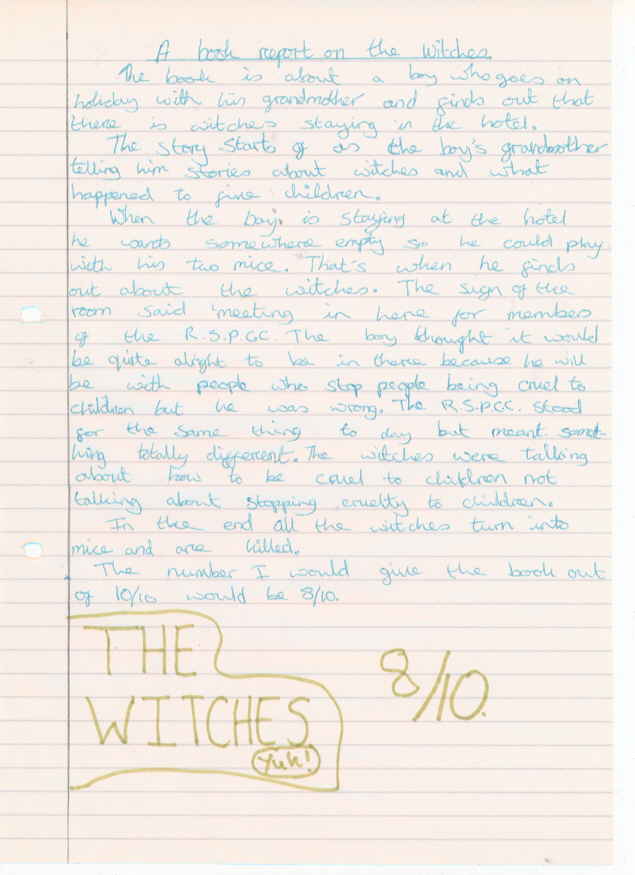 A book report on the witches.
The book is about a boy who goes on
holiday with his grandmother and finds out that
there is witches staying in the hotel.
The story starts of as the boy's grandmother
telling him stories about witches and what
happened to five children.
When the boy is staying at the hotel
he wants somewhere empty so he could play
with his two mice. That's when he finds
out about the witches. The sign of the
room said 'meeting in here for members
of the R.S.P.C.C. The boy thought it would
be quite alright to be in there because he will
be with people who stop people being cruel to
children but he was wrong. The R.S.P.C.C. stood
for the same thing to day but meant somet-
hing totally different. The witches were talking
about how to be cruel to children not
talking about stopping cruelty to children.
In the end all the witches turn into
mice and are killed.
The number I would give the book out
of 10/10 would be 8/10.
THE
WITCHES
Yuk!
8/10.